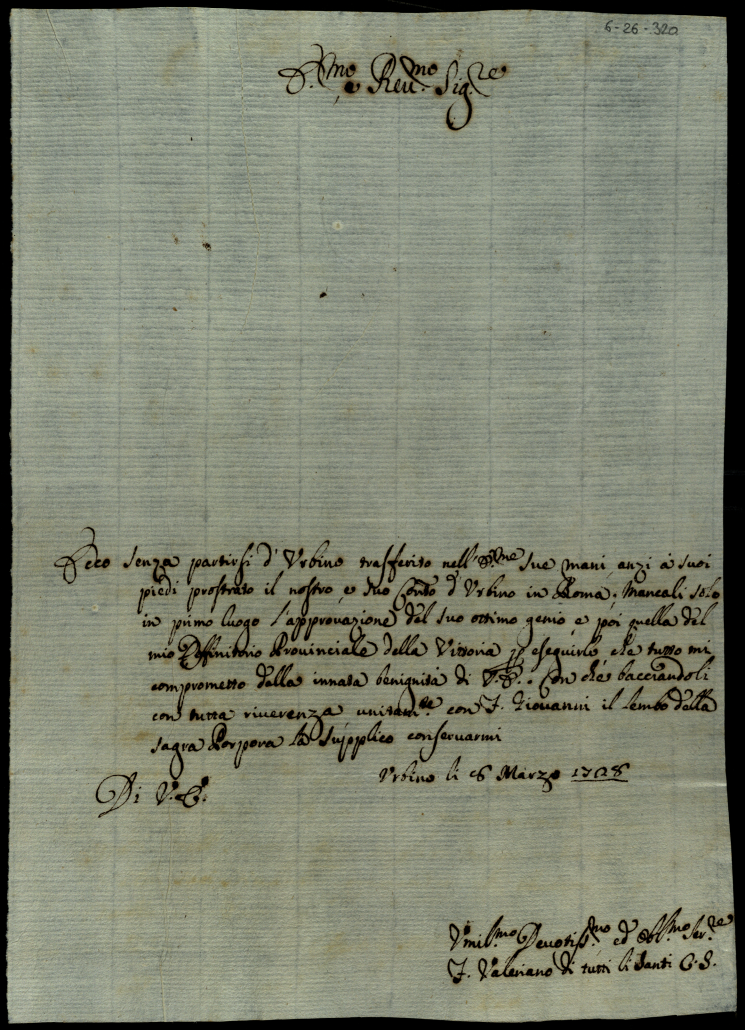 6-26-320
E.mo e Reu.mo Sig.re
Ecco senza partirsi d'Urbino trasferito nell'E.me Sue mani, anzi à suoi
piedi prostrato il nostro, e suo Conto d'Urbino in Roma; Mancali solo
in primo luogo l'approvazione del suo ottimo genio e poi quella del
mio Deffinitorio Provinciale della Vittoria p eseguirlo che tutto mi
comprometto dalla innata benignità di V.E. Con che bacciandoli
con tutta riverenza unitam.te con F. Giovanni il lembo della
sagra Porpora La supplico conservarmi
Urbino li 6 Marzo 1728
Di V.E.
Umil.mo Devotiss.mo ed Obl.mo Ser.re
F. Valeriano di tutti li Santi C.S.